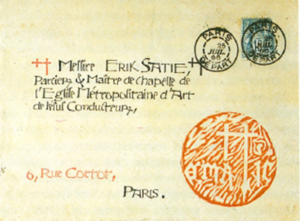 Messire ERIK SATIE,
Parcier & Maître de Chapelle de
l'Eglise Métropolitaine d'Art
de Jésus Conducteur,
6, Rue Cortot,
PARIS.
PARIS
DEPART
PARIS
DEPART